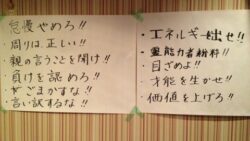 怠慢やめろ!!
・周りは正しい!!
・親の言うことを聞け!!
・負けを認めろ!!
・ごまかすな!!
・言い訳するな!!
・エネルギー出せ!!
・霊能力者
・目ざめよ!!
・才能を生かせ!!
・価値を上げろ!!